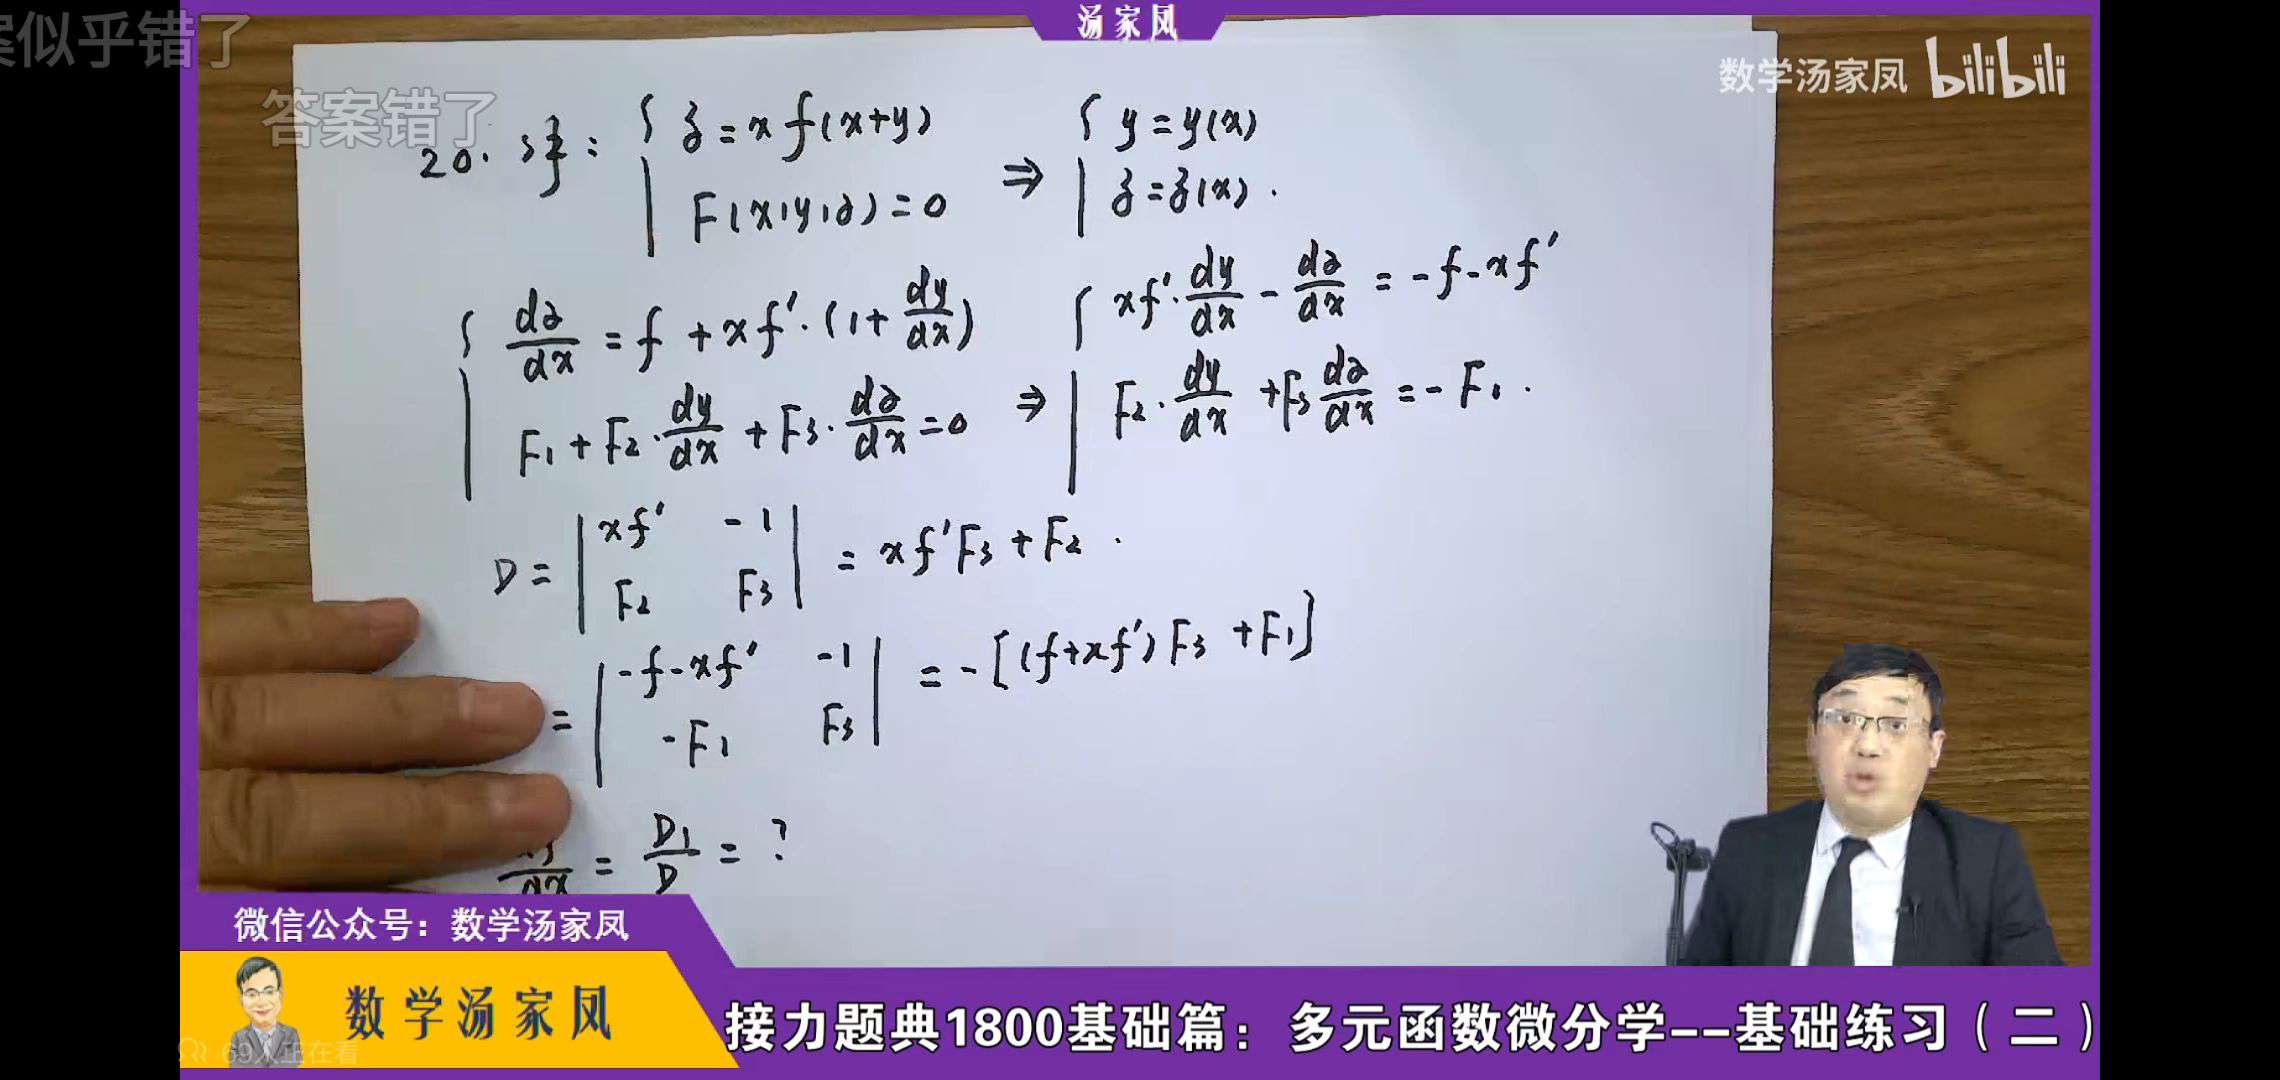 汤家凤
案似乎错了
答案错了
数学汤家凤 bilibili
20. 解: { z = x f(x+y)
F(x,y,z) = 0
⇒ { y = y(x)
z = z(x).
{ dz/dx = f + x f'·(1 + dy/dx)
F₁ + F₂·dy/dx + F₃·dz/dx = 0
⇒ { xf'·dy/dx - dz/dx = -f - xf'
F₂·dy/dx + F₃ dz/dx = -F₁.
D = | xf' -1 |
| F₂ F₃ | = xf'F₃ + F₂.
= | -f-xf' -1 |
| -F₁ F₃ | = -[(f+xf')F₃ + F₁]
dx = D₁/D = ?
微信公众号：数学汤家凤
数学汤家凤
69人正在看
接力题典1800基础篇：多元函数微分学--基础练习（二）